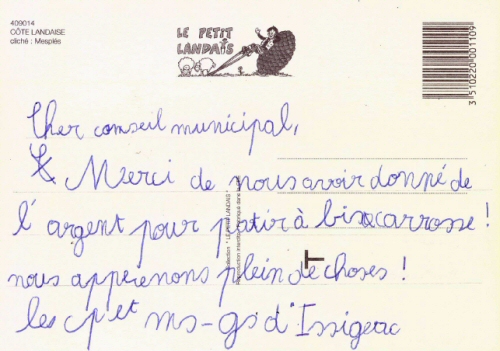 409014
CÔTE LANDAISE
cliché : Mesplés
LE PETIT
LANDAIS
3 510220 001109
Cher conseil municipal,
Merci de nous avoir donné de
l'argent pour partir à biscarrosse !
nous apprenons plein de choses !
les cp et ms-gs d'Issigeac
collection " LE PETIT LANDAIS "